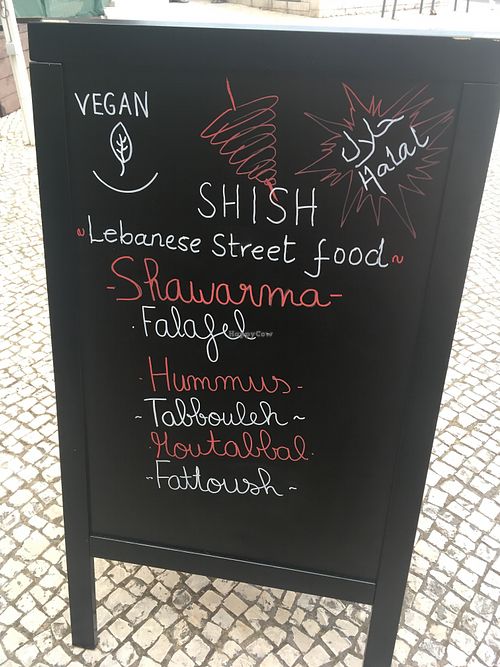 VEGAN
حلال
Halal
SHISH
~Lebanese Street food~
-Shawarma-
·Falafel
HappyCow
·Hummus·
-Tabbouleh~
·Moutabbal·
-Fattoush-